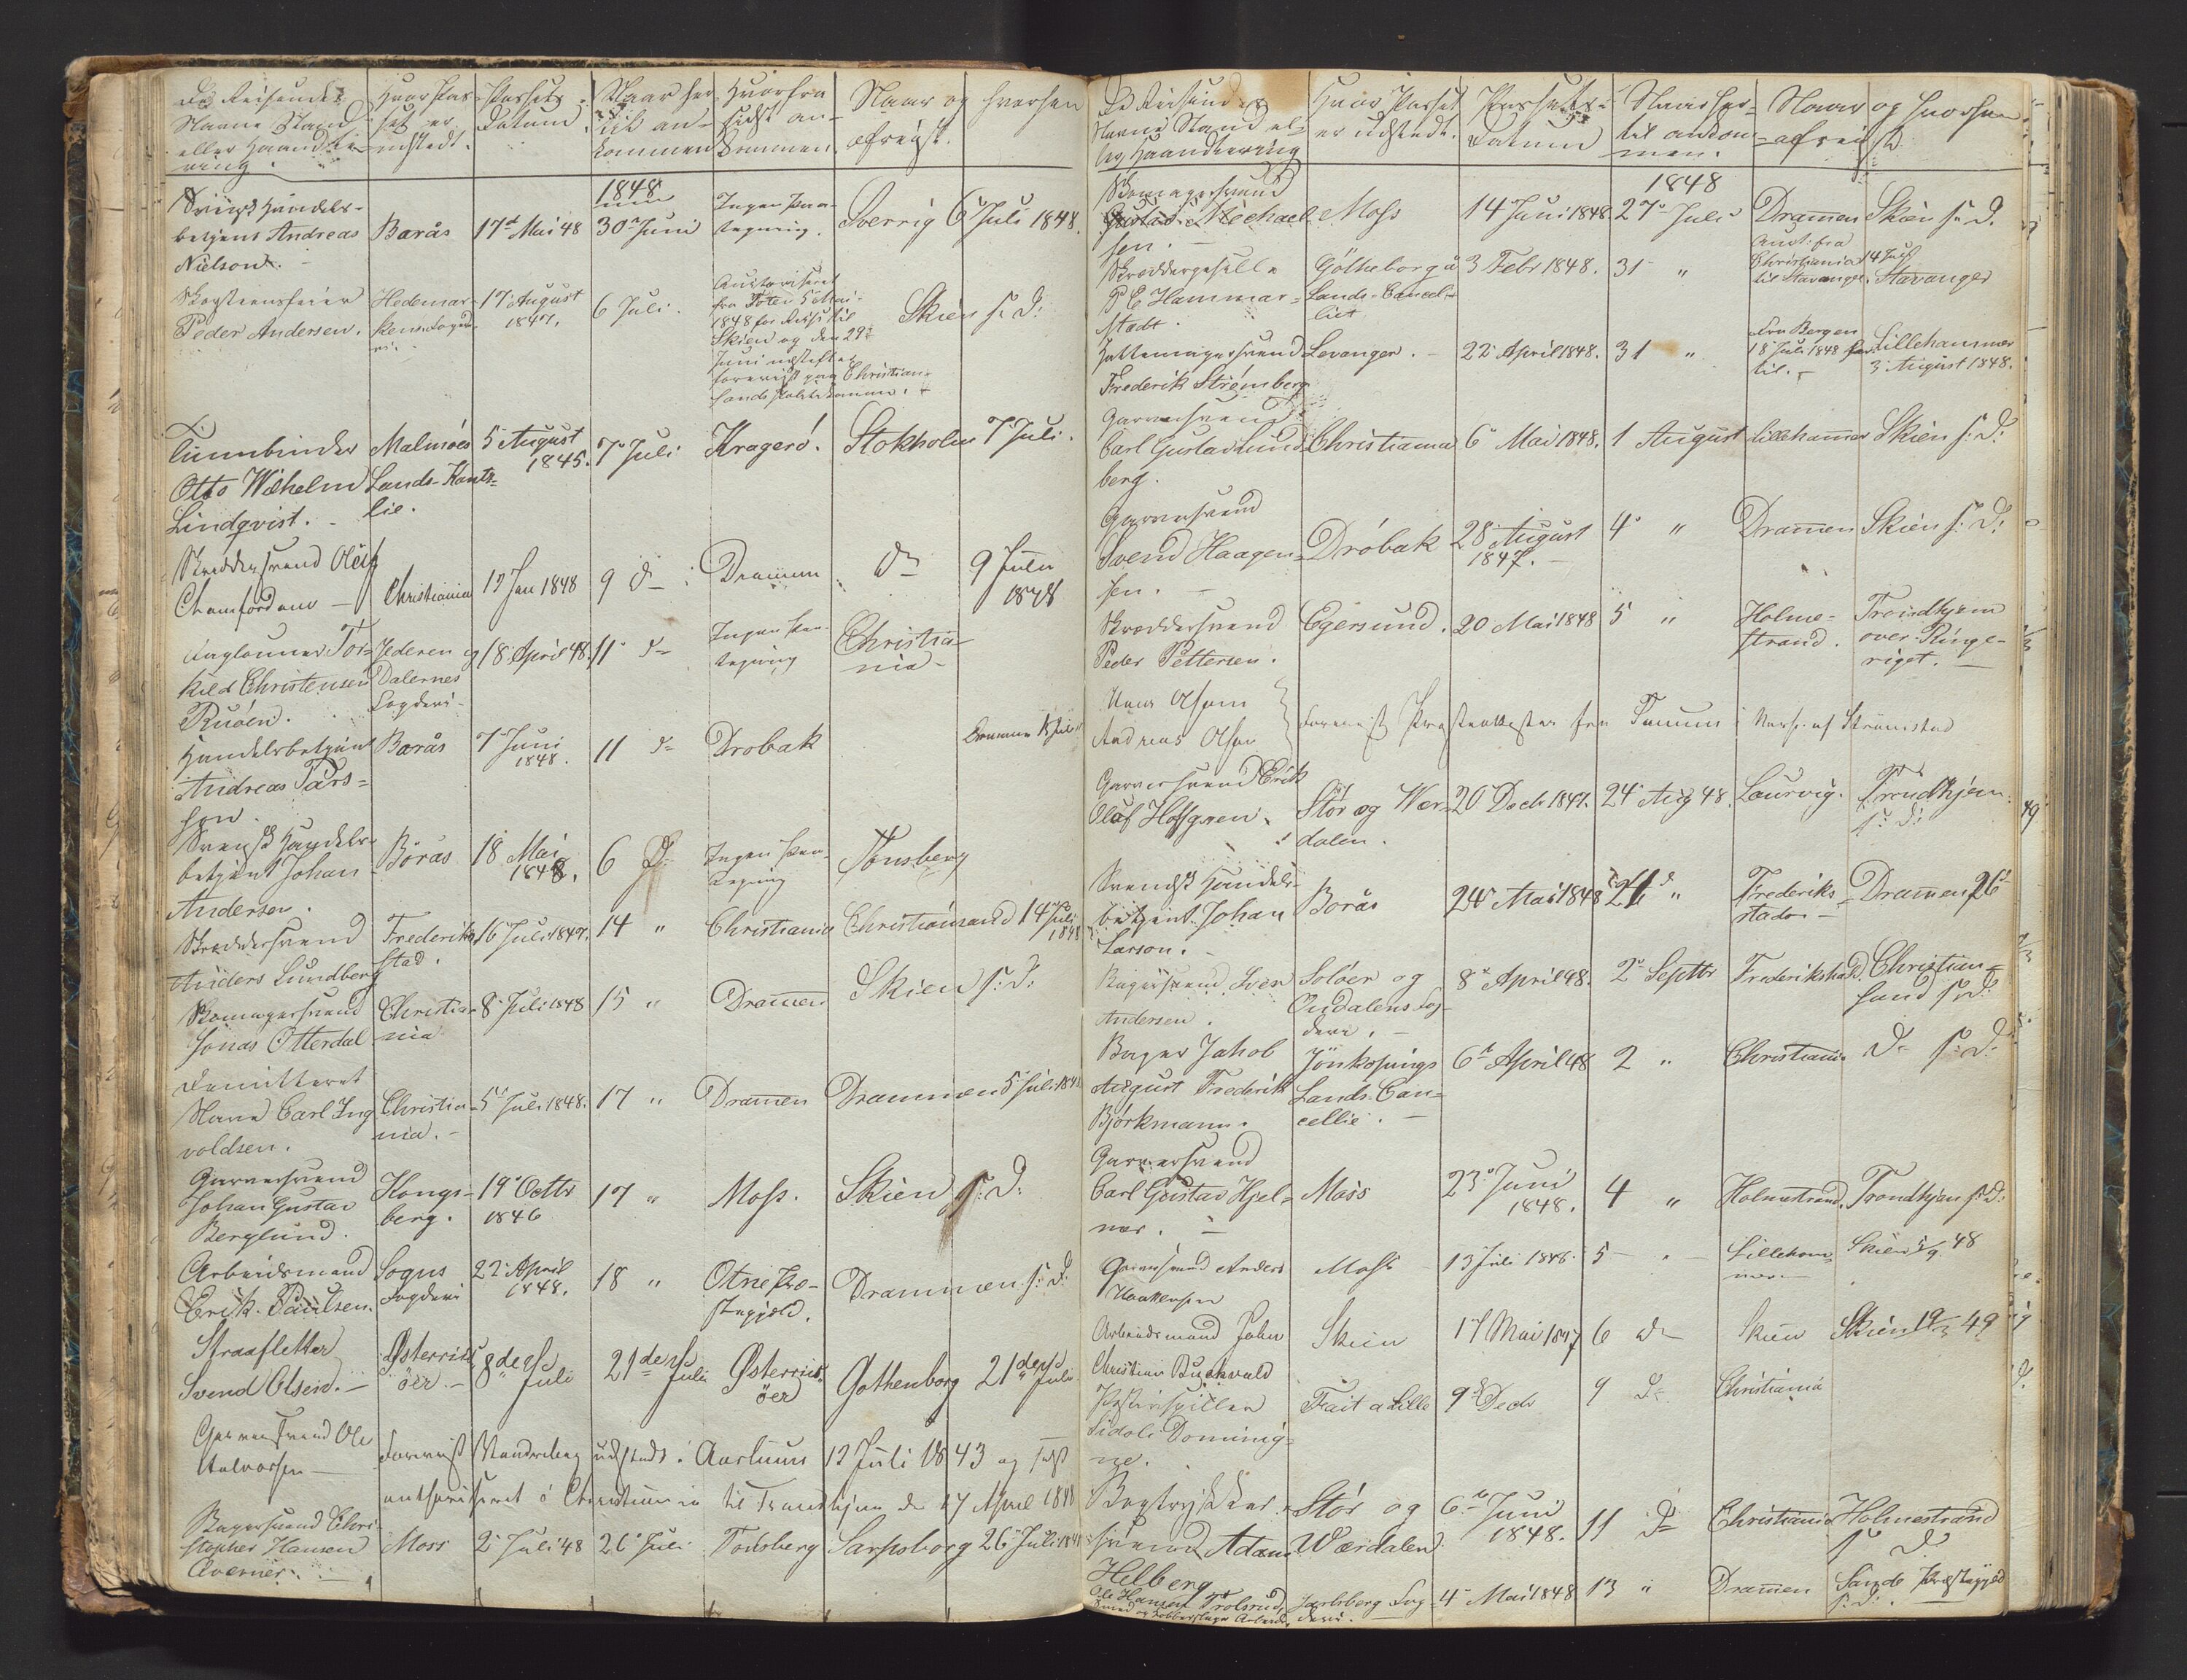 De Reisendes
Navne Stand
eller Haandte-
ring.
Hvor Pas-
set er
udstedt.
Passets
Datum.
Naar her-
til an-
kommen
Hvorfra
sidst an-
kommen.
Naar og hvorhen
afreist.
1848
Svensk Handels-
betjent Andreas
Nielson.
Borås
17d Mai 48
30 Juni
Ingen Paa-
tegning.
Sverrig 6 Juli 1848.
Skorsteensfeier
Peder Andersen.
Hedemar-
kens Fogde-
ri.
17 August
1847.
6 Juli.
Autoriseret
fra Toten 5 Mai
1848 for Reise til
Skien og den 29
Juni næstefter
forevist paa Christian-
sands Politikammer.
Skien s. D:
Timmbinder
Otto Wilhelm
Lindqvist.
Malmöes
Lands-Kants-
lie.
5 August
1845.
7 Juli
Kragerö.
Stokholm 7 Juli.
Skrædersvend Oluf
Christiania
17 Jan 1848
9 d
Dramen
do
9 Juli
1848
Tor-
kild Christensen
Ruöen.
Jederen og
Dalernes
Fogderi
18 April 48.
11 d
Ingen Paa-
tegning
Christia-
nia
Handelsbetjent
Andreas Pärs-
son.
Borås
7 Juni
1848.
11 d
Drobak
Svensk Handels-
betjent Johan
Andersen.
Börås
18 Mai
1848.
6 D
Ingen Paa-
tegning
Tønsberg
Skræddersvend
Anders Lundberg
Frederik-
stad.
16 Juli 1847.
14 "
Christiania
Christiansand 14 Juli
1848
Skomagersvend
Jonas Otterdal
Christia-
nia
8 Juli 1848
15 "
Dramen
Skien s. D:
Demitteret
Slave Carl Ing
voldsen.
Christia-
nia.
5 Juli 1848.
17 "
Dramen
Drammen 5 Juli 1848
Garversvend
Johan Gustav
Berglund.
Kongs-
berg.
19 Octbr
1846
17 "
Moss.
Skien s. D:
Arbeidsmand
Erik Paulsen.
Sogns
Fogderi
22 April
1848.
18 "
Otnæ Præ-
stegjeld.
Drammen s. D:
Straafletter
Svend Olsen.
Østerriis
öer
8de
Juli
21de Juli
Østerriis
öer
Gothenborg 21de Juli
Garversvend Ole
Halvorsen
Forevist Vandrebog udstedt i Aarhuus 12 Juli 1843 og sidst
autoriseret i Christiania til Trondhjem d 17 April 1848
Bagersvend Chri-
stopher Hansen
Averner.
Moss
2 Juli 48
26 Juli
Tönsberg
Sarpsborg 26 Juli 1848
De Reisendes
Navne Stand el-
ler Haandtering
Hvor Passet
er udstedt.
Passets
Datum
Naar her-
til ankom-
men.
Naar og hvorhen
afreist
1848
Skomagersvend
Gustav Michael-
sen.
Moss
14 Juni 1848.
27 Juli
Dramen
Skien s. D.
Skræddergesell
P E Hammar-
stedt.
Götheborgs
Lands-Cancel-
liet
3 Febr 1848.
31 "
Autor. fra
Christiania 14 Juli
til Stavanger.
Stavanger
Hattemagersvend
Frederik Strömberg
Levanger.
22 April 1848.
31 "
Fra Bergen
18 Juli 1848 her-
til.
Lillehammer
3 August 1848.
Garversvend
Carl Gustav Lund-
berg.
Christiania
6 Mai 1848.
1 August
Lillehamer
Skien s. D:
Garversvend
Svend Haagen-
sen.
Dröbak
28 August
1847.
4 "
Dramen
Skien s. D:
Skræddersvend
Peder Pettersen.
Egersund.
20 Mai 1848
5 "
Holme-
strand.
Trondhjem
over Ringe-
riget.
Hans Olsen
Andreas Olsen
Forevist Præsteattester fra Tanum i Nærh. af Strömstad
Garversvend Erik
Oluf Hoffgren.
Stör og Wer-
dalen.
20 Decbr 1847.
24 Aug 48.
Laurvig.
Trondhjem
s: D:
Svendsk Handels-
betjent Johan
Larson.
Borås
24 Mai 1848
Frederik-
stad.
Dramen 26
Bagersvend Sven
Andersen.
Solöer og
Oudalens Fog-
deri.
8 April 48.
2 Septbr
Frederikshald.
Christian-
sand s. D.
Bager Jakob
August Frederik
Björkmann.
Jönköpings
Lands-Can-
cellie.
6 April 48
2 "
Christiania
d s. D.
Garversvend
Carl Gustav Hjel-
mer.
Moss
23 Juni
1848.
4 "
Holmestrand.
Trondhjem s: D:
Garversvend Anders
Haakensen
Moss
13 Juli 1848.
5 "
Lilleham-
mer
Skien 5/9 48
Arbeidsmand John
Christian Buchvald
Skien
17 Mai 1847
6 do
Skien
Skien 19/3 49
Lidoli Dominig-
ne.
Fait a Lille
9 Decbr
9 d
Christiania
Bogtrykker-
svend Adam
Helberg
Stör og
Wærdalen
6 Juni
1848.
11 D
Christiania
Holmestrand
s D
Ole Hansen Trolsrud,
Smed og Kobberslager Arbeide.
Jarlsberg Fog-
deri.
4 Mai 1848
13 "
Dramen
Sande Præstegjeld
s. D.